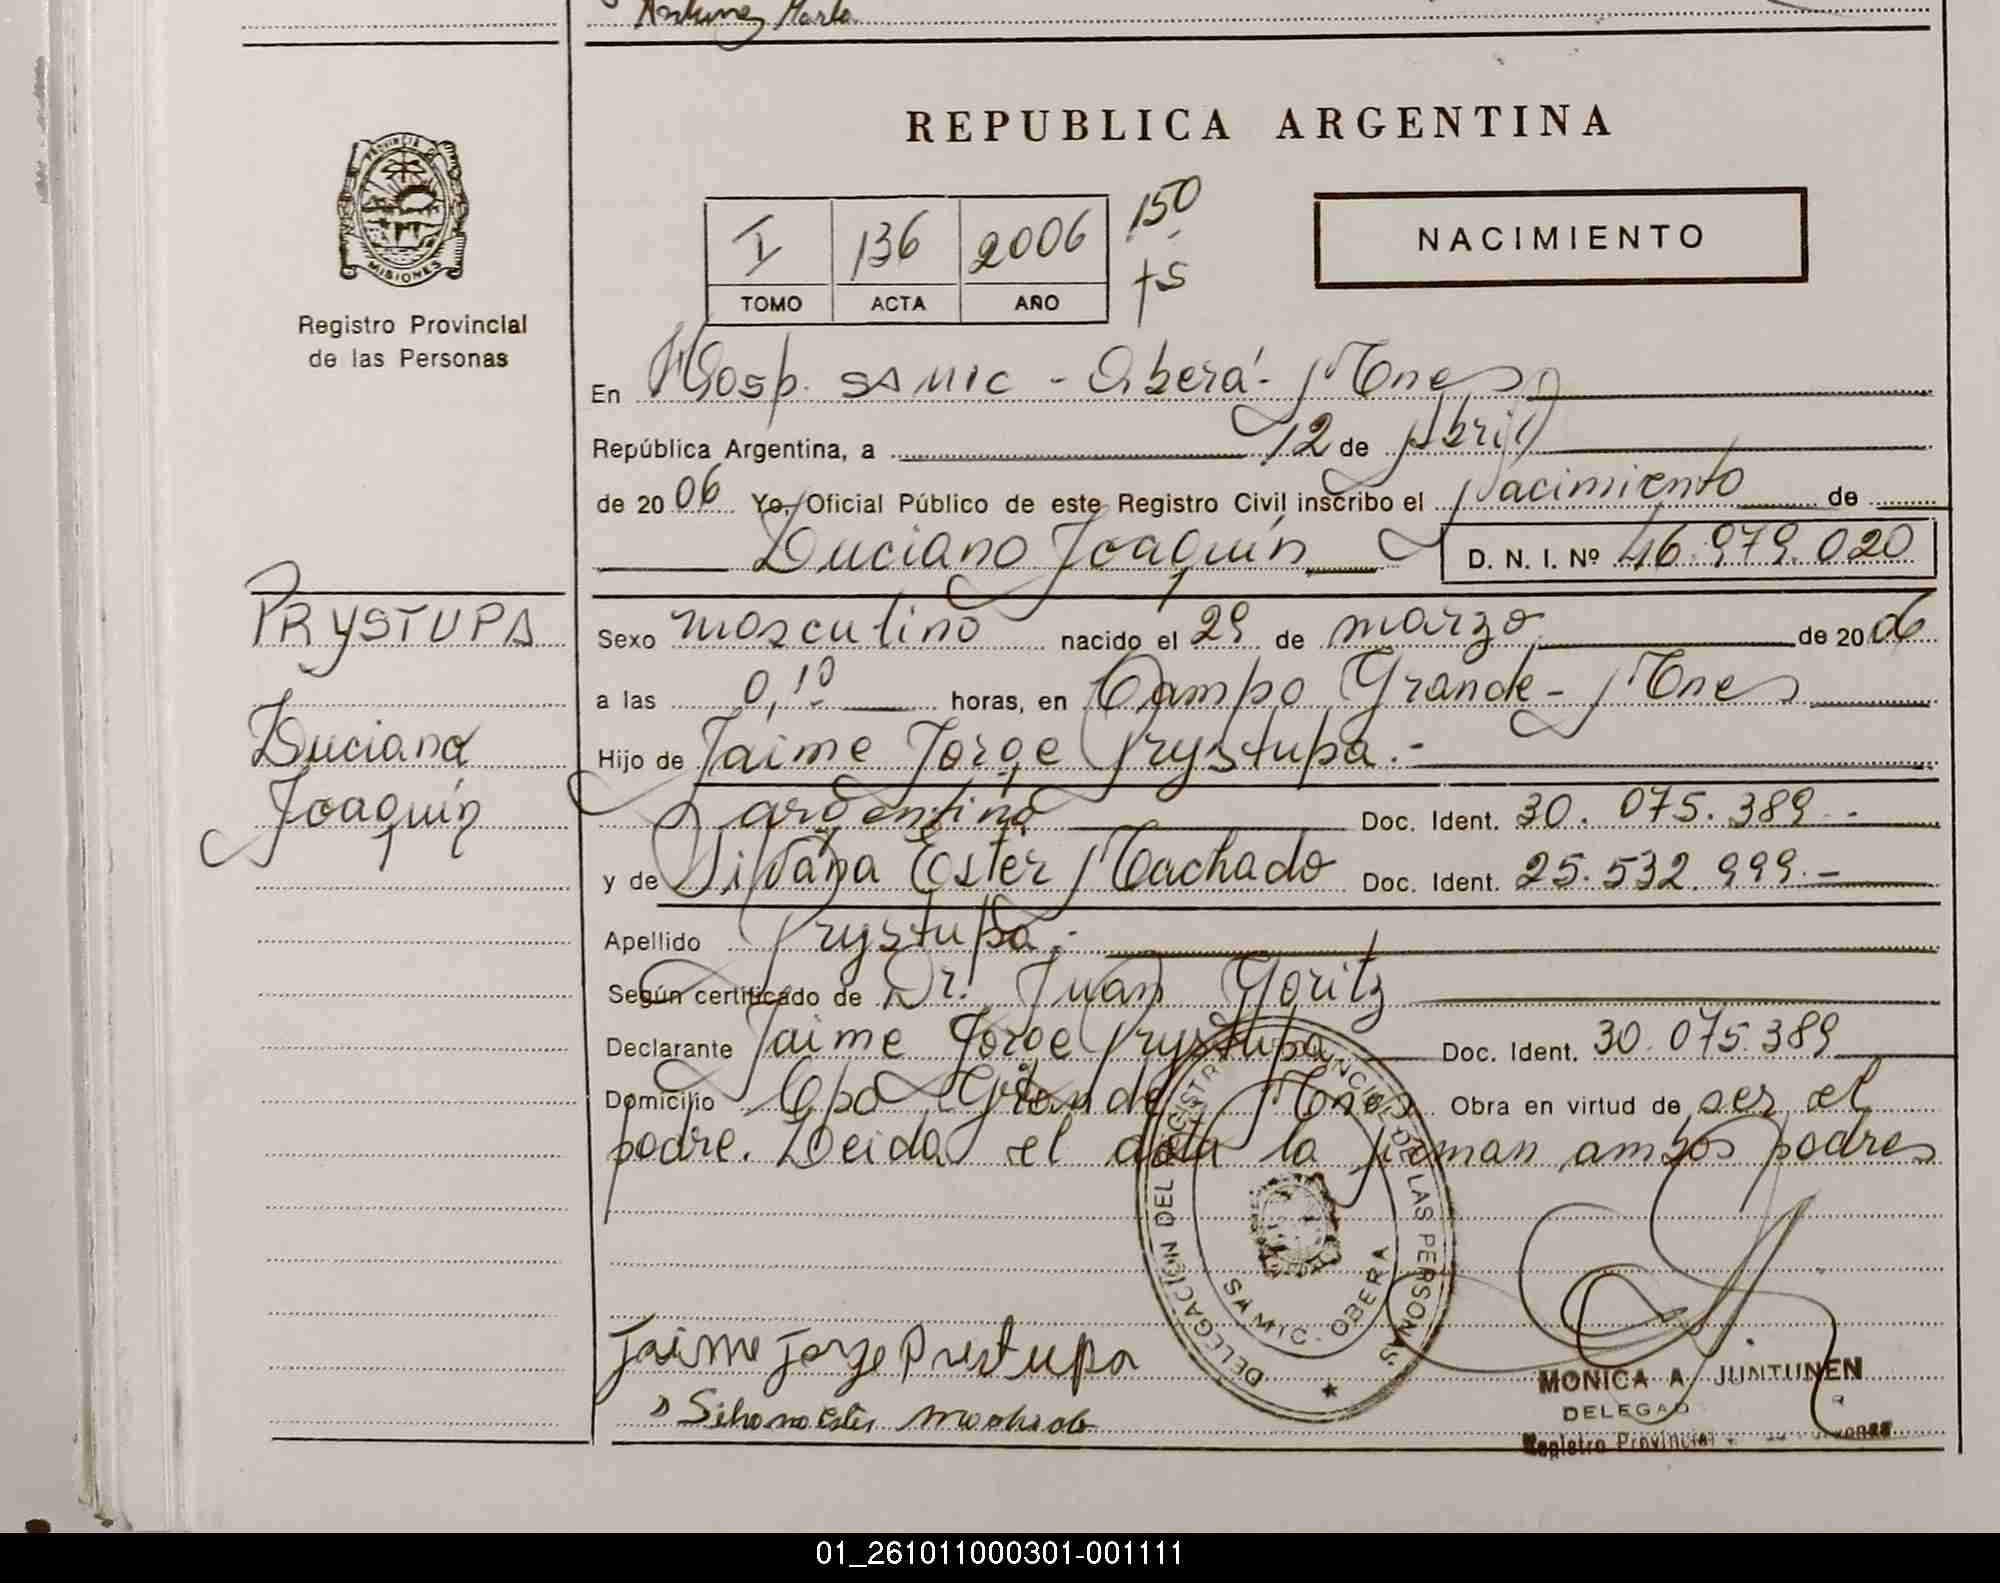 Antunez Marta
REPUBLICA ARGENTINA
PROVINCIA DE
MISIONES
Registro Provincial
de las Personas
I 136 2006 150
TOMO ACTA AÑO
NACIMIENTO
En Hosp. SAMIC - Oberá - Mnes
República Argentina, a 12 de Abril
de 2006 Yo, Oficial Público de este Registro Civil inscribo el Nacimiento de
Luciano Joaquín D. N. I. Nº 46.979.020
PRYSTUPA
Luciano
Joaquín
Sexo masculino nacido el 29 de marzo de 2006
a las 0,10 horas, en Campo Grande - Mnes
Hijo de Jaime Jorge Prystupa.-
argentino Doc. Ident. 30.075.389.-
y de Silvana Ester Machado Doc. Ident. 25.532.999.-
Apellido Prystupa.-
Según certificado de Dr. Juan Yoritz
Declarante Jaime Jorge Prystupa Doc. Ident. 30.075.389
Domicilio Cpo Grande Mnes Obra en virtud de ser el
padre. Leida el acta la firman ambos padres
DELEGACIÓN DEL REGISTRO PROVINCIAL DE LAS PERSONAS
SAMIC - OBERA
Jaime Jorge Pristupa
Silvana Ester Machado
MONICA A. JUNTUNEN
DELEGAD
Registro Provincial
01_261011000301-001111